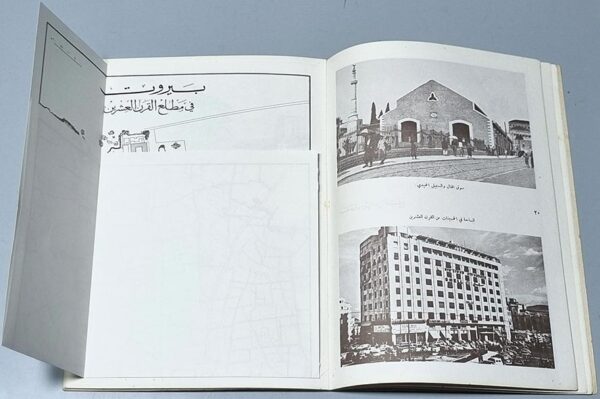 بيروت
في مطلع القرن العشرين
سوق الجمال والسبيل الحميدي.
٢٠
الساحة في الخمسينات من القرن العشرين